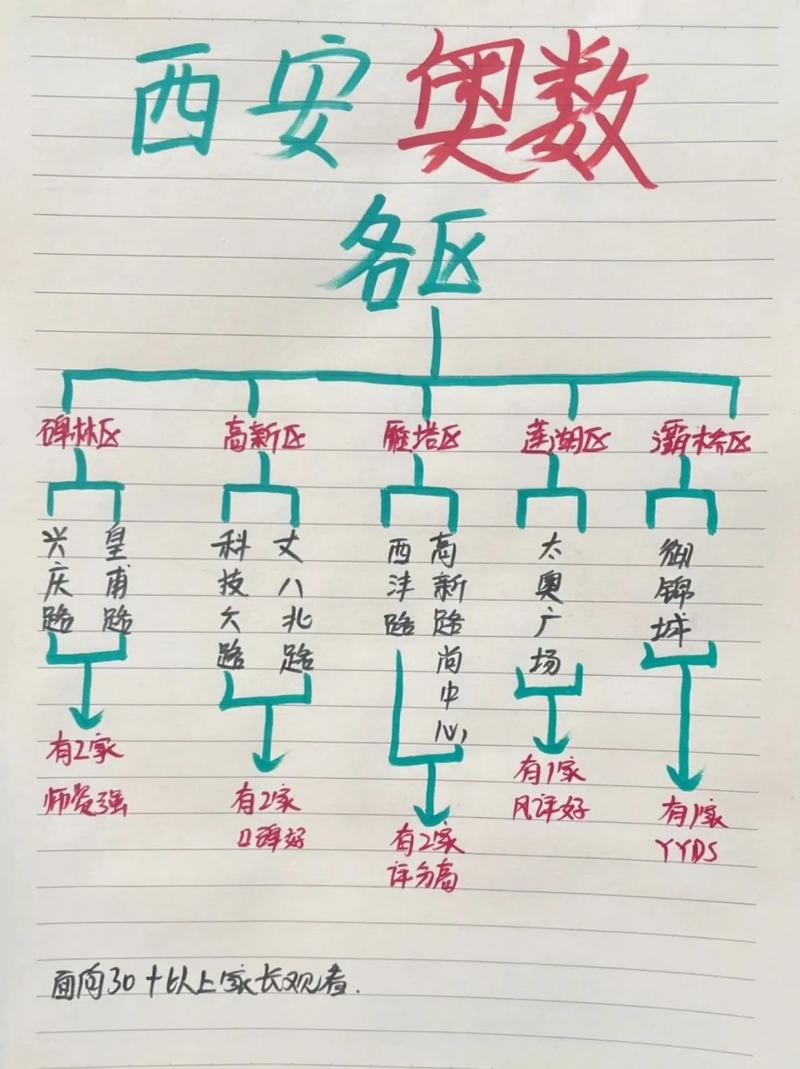 西安奥数
各区
碑林区
高新区
雁塔区
莲湖区
灞桥区
兴庆路
皇甫路
科技六路
丈八北路
西沣路
高新路尚中心
太奥广场
御锦城
有2家
师资强
有2家
口碑好
有2家
评分高
有1家
风评好
有1家
YYDS
面向30+以上家长观看.